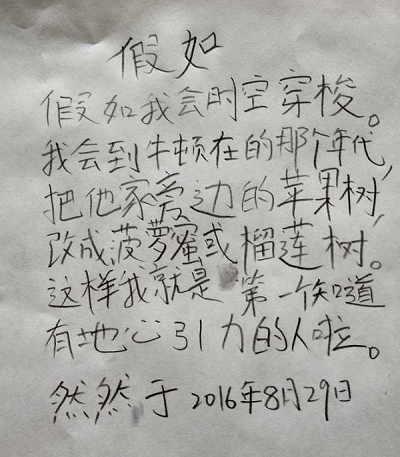 假如
假如我会时空穿梭。
我会到牛顿在的那个年代,
把他家旁边的苹果树,
改成菠萝蜜或榴莲树。
这样我就是第一个知道
有地心引力的人啦。
然然于2016年8月29日